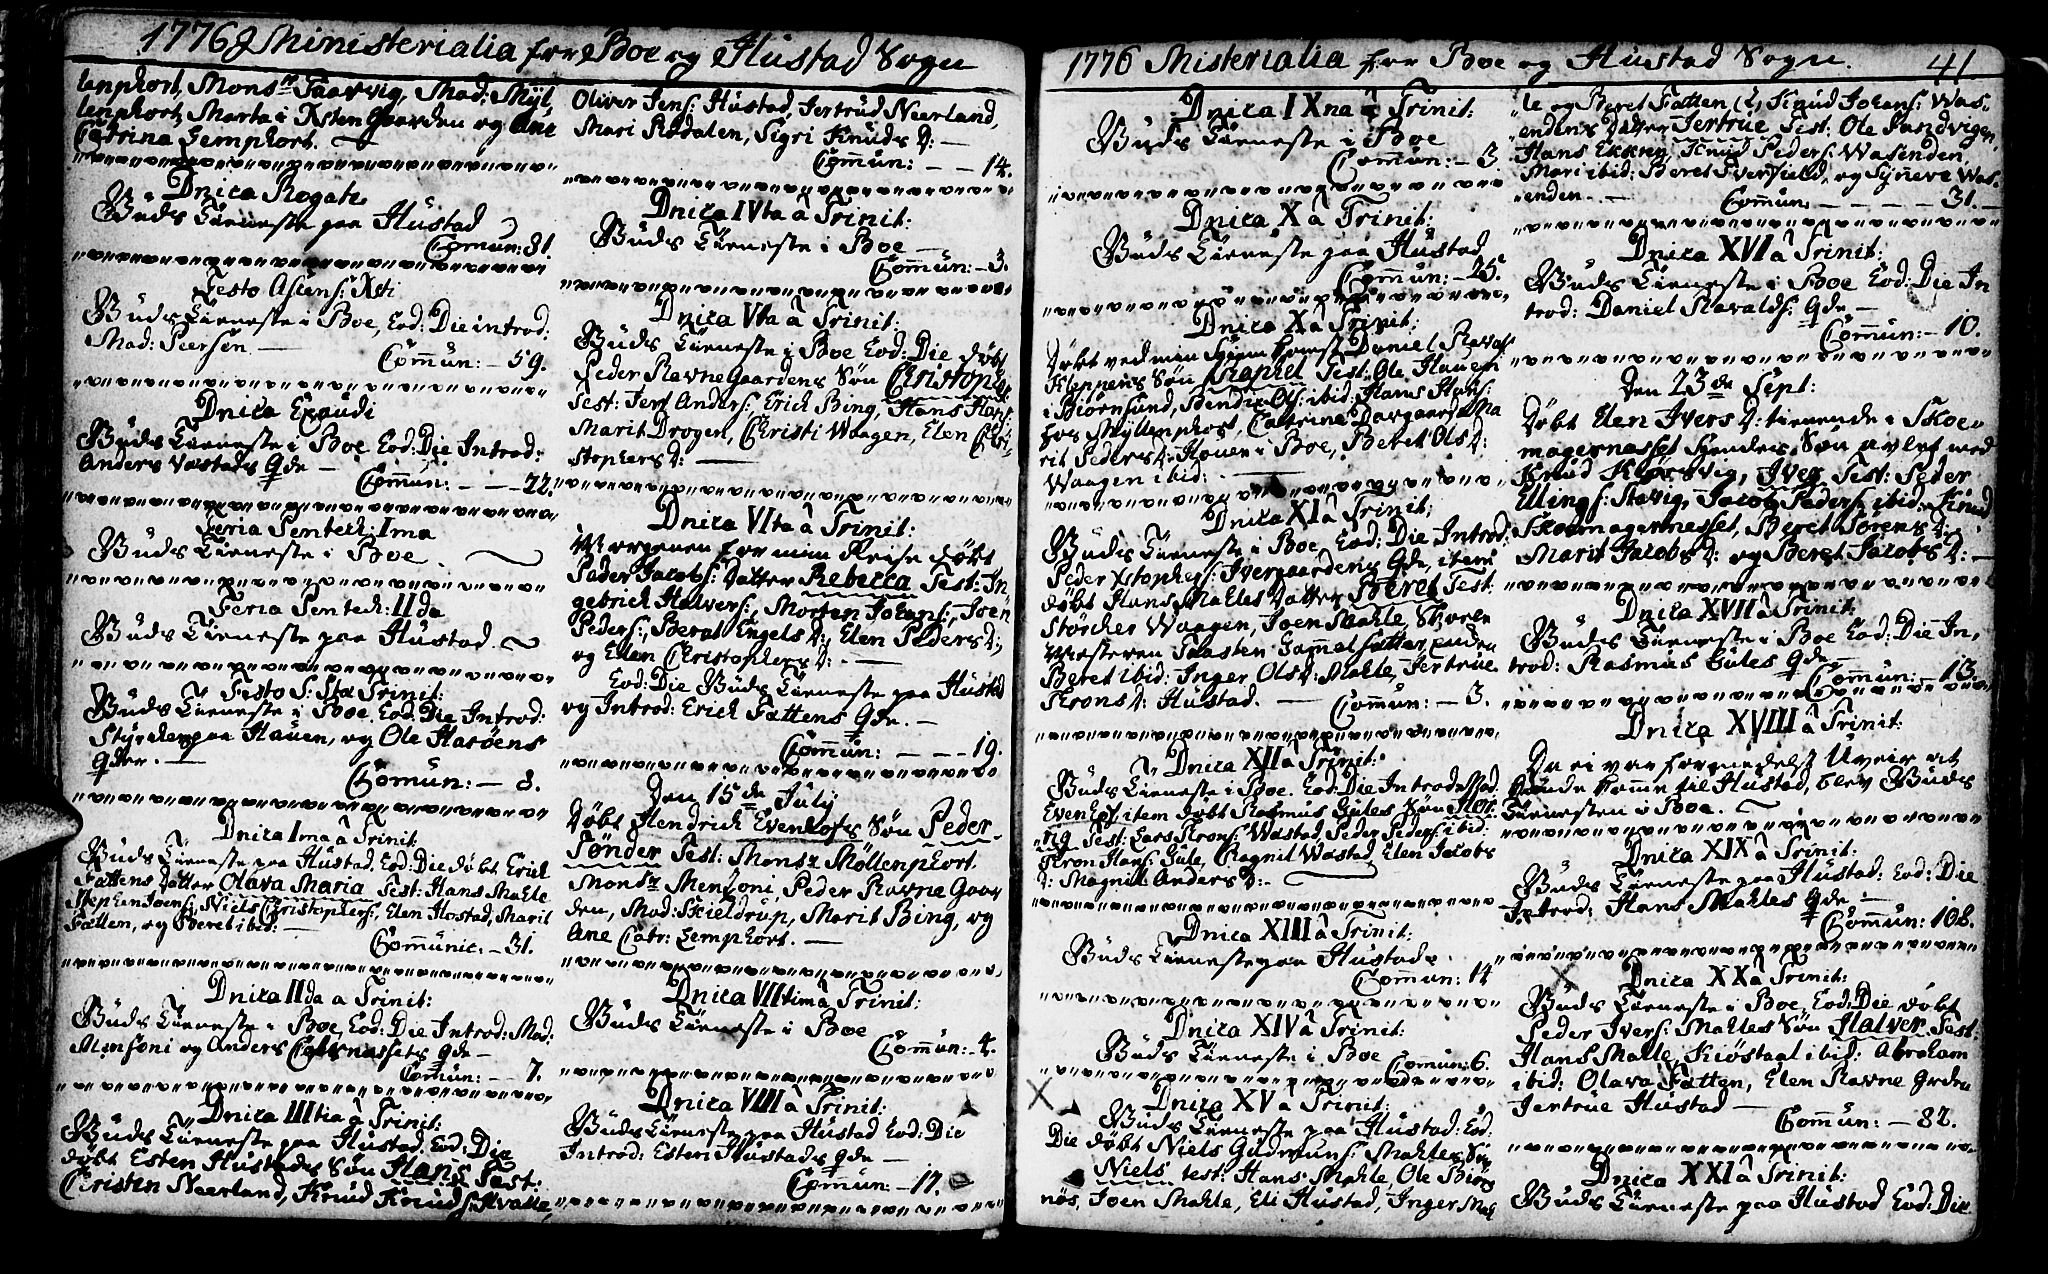 1776 Ministerialia for Boe og Hustad Sogn
lenphort, Mons.r Taarvig, Mad: Myl,
lenphort, Marta i Xsten Gaarden og Ane
Catrina Lemphort.
Dnica Rogate
Guds Tieneste paa Hustad
Comun: 31.
Festo Ascens: Xsti
Guds Tieneste i Boe, Eod: Die introd:
Mad: Peersen
Com̄un: – 59.
Dnica Exaudi
Guds Tieneste i Boe Eod: Die Introd:
Anders Vastads Qde –
Com̄un: – – 22.
Feria Pentech: Ima
Guds Tieneste i Boe.
Feria Pentech: IIda
Guds Tieneste paa Hustad.
Festo S: Stæ Trinit:
Guds Tieneste i Boe. Eod: Die Introd:
Styrcher paa Hauen, og Ole Harøens
Qder. –
Com̄un: – 8.
Dnica Ima â Trinit:
Guds Tieneste paa Hustad. Eod: Die døbt Erich
Fattens datter Olava Maria Test: Hans Mahle
Stephen Joens:, Niels Christophers:, Elen Hostad, Marit
Fatten, og Beret ibid: –
Com̄unic. – 31.
Dnica IIda a Trinit:
Guds Tieneste i Boe, Eod: Die Introd: Mad:
Monsoni og Anders Catrnessets Qde –
Com̄un: – 7.
Dnica IIItia â Trinit:
Guds Tieneste paa Hustad. Eod: Die
døbt Esten Hustads Søn Hans Test:
Christen Neerland, Knud Knuds: Hvalle,
Oliver Jens: Hustad, Jertrud Neerland,
Mari Rødalen, Sigri Knuds D: –
Com̄un: – – 14.
Dnica IVta â Trinit:
Guds Tieneste i Boe –
Com̄un: – 3.
Dnica Vta â Trinit:
Guds Tieneste i Boe Eod: Die døbt
Peder Ravne Gaardens Søn Christopher
Test: Jens Anders:, Erich Bing, Hans Hans:
Marit Drogen, Christi Waagen, Elen Chri-
stophers D: –
Dnica VIta â Trinit:
Morgenen før min Reise døbt
Peder Jacobs: datter Rebecca Test: In-
gebrich Halvers:, Morten Johans:, Joen
Peders:, Beret Engels D:, Elen Peders D:,
og Elen Christophers D: –
Eod: Die Guds Tieneste paa Hustad
og Introd: Erich Fattens Qde. –
Com̄un: – – – 19.
Den 15de July
døbt Hendrich Evenhofs Søn Peder
Sønder Test: Monsr Møllenphort.
Monsr Menzoni, Peder Ravne Gaar
den, Mad: Skieldrup, Marit Bing, og
Ane Catr: Lemphort. –
Dnica VIItimâ Trinit:
Guds Tieneste i Boe
Com̄un: – 4.
Dnica VIII â Trinit:
Guds Tieneste paa Hustad Eod: Die
Introd: Esten Hustads Qde –
Com̄un – 17.
1776 Misterialia for Boe og Hustad Sogn. 41
Dnica IXna â Trinit:
Guds Tieneste i Boe
Com̄un: – 3.
Dnica X â Trinit:
Guds Tieneste paa Hustad
Com̄un: – 25.
Dnica X â Trinit:
døbt ved min Hiem komst Daniel Raval
Kleppens Søn Raphel Test: Ole Hauen
i Biørnsund, Bendix Ols: ibid: Hans Hans:
hos Myllenphort, Catrine Davgaard Ma
rit Peders D: Houen i Boe, Beret Ols D:
Waagen ibid: –
Dnica XI â Trinit:
Guds Tieneste i Boe, Eod: Die Introd:
Peder Xstophers: Ivergaardens Qde, item
døbt Hans Mahles datter Beret Test:
Størcher Waagen, Joen Mahle,
Taasten Gam̄elsatter,
Beret ibid: Inger Ols D: Mahle, Jertrue
Throns D: Hustad. – Com̄un: – 3.
Dnica XII â Trinit:
Guds Tieneste i Boe. Eod: Die Introd: Mad
Evenhof, item døbt Rasmus Gules Søn
Test: Lars Throns: Wastad, Peder Peders: ibid:
Thron Hans: Gule, Ragnil Wastad Elen Jacobs
D: Magnil Anders D: –
Dnica XIII â Trinit:
Guds Tieneste paa Hustad.
Com̄un: 14
Dnica XIV â Trinit:
Guds Tieneste i Boe Com̄un: 6.
Dnica XV â Trinit:
Guds Tieneste paa Hustad: Eod:
Die døbt Niels Gudmuns: Mahles Søn
Niels test: Hans Mahle, Ole Biørg
nøs, Joen Mahle, Eli Hustad, Inger Mah
le og Beret Fatten Knud Johans: Was-
endens datter Jertrue Test: Ole Sandvigen
Hans Ekkren, Knud Peders: Wasenden,
Mari ibid: Beret Sverfield, og Synneve Was-
enden. – Com̄un – – – 31. –
Dnica XVI â Trinit:
Guds Tieneste i Boe Eod: Die In
trod: Daniel Ravalds: Qde –
Com̄un: – 10.
Den 23de Sept:
døbt Elen Ivers D: tienende i Skoe-
magernesset hendes Søn avlet med
Knud Iver Test: Peder
Ellings: Stavig, Jacob Peders: ibid: Knud
Skoemagernesset, Beret Sørens D:
Marit Jacobs D: og Beret Jacobs D: –
Dnica XVII â Trinit:
Guds Tieneste i Boe Eod: Die In,
trod: Rasmus Gules Qde –
Com̄un: – 13.
Dnica XVIII â Trinit:
Da ei var formedelst Uveir at
kunde kom̄e til Hustad, blev Guds
Tienesten i Boe.
Dnica XIX â Trinit:
Guds Tieneste paa Hustad: Eod: Die
Introd: Hans Mahles Qde –
Com̄un: 108.
Dnica XX â Trinit:
Guds Tieneste i Boe, Eod: Die døbt
Peder Ivers: Mahles Søn Halver Test:
Hans Mahle, Kiøstaal ibid: Abraham
ibid: Olava Fatten, Elen Ravne Grden
Jertrue Hustad –
Com̄un: – 82.
Dnica XXI â Trinit:
Guds Tieneste paa Hustad Eod: Die